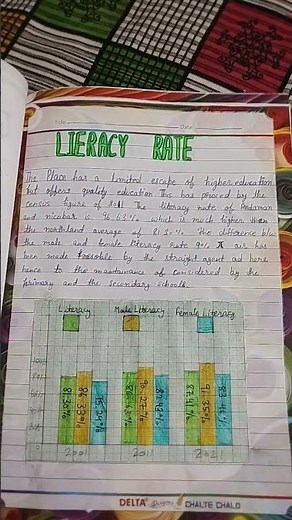 Date
LIERACY RATE
The Place has a limited escape of higher education
but offers quality education This has proved by the
census figure of 2011 The literacy rate of Andaman
and nicobar is 86.63% which is much higher than
the northland average of 81.30% The difference b/w
the male and female literacy rate 90%
been made possible by the straight agent as here
hence to the maintainance of considered by the
primary and the secondary schools.
Literacy Male Literacy Female Literacy
81.30% 86.33% 75.24% 86.63% 90.27% 82.43% 87.41% 91.35%
2001 2011 2021
DELTA CHALTE CHALO